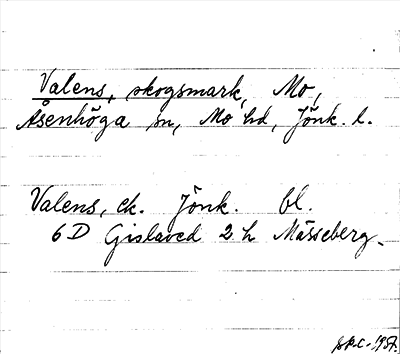 Valens, skogsmark, Mo,
Åsenhöga sn, Mo hd, Jönk. l.
Valens, ek. Jönk. bl.
6 D Gislaved 2 h Mässeberg.
1957.